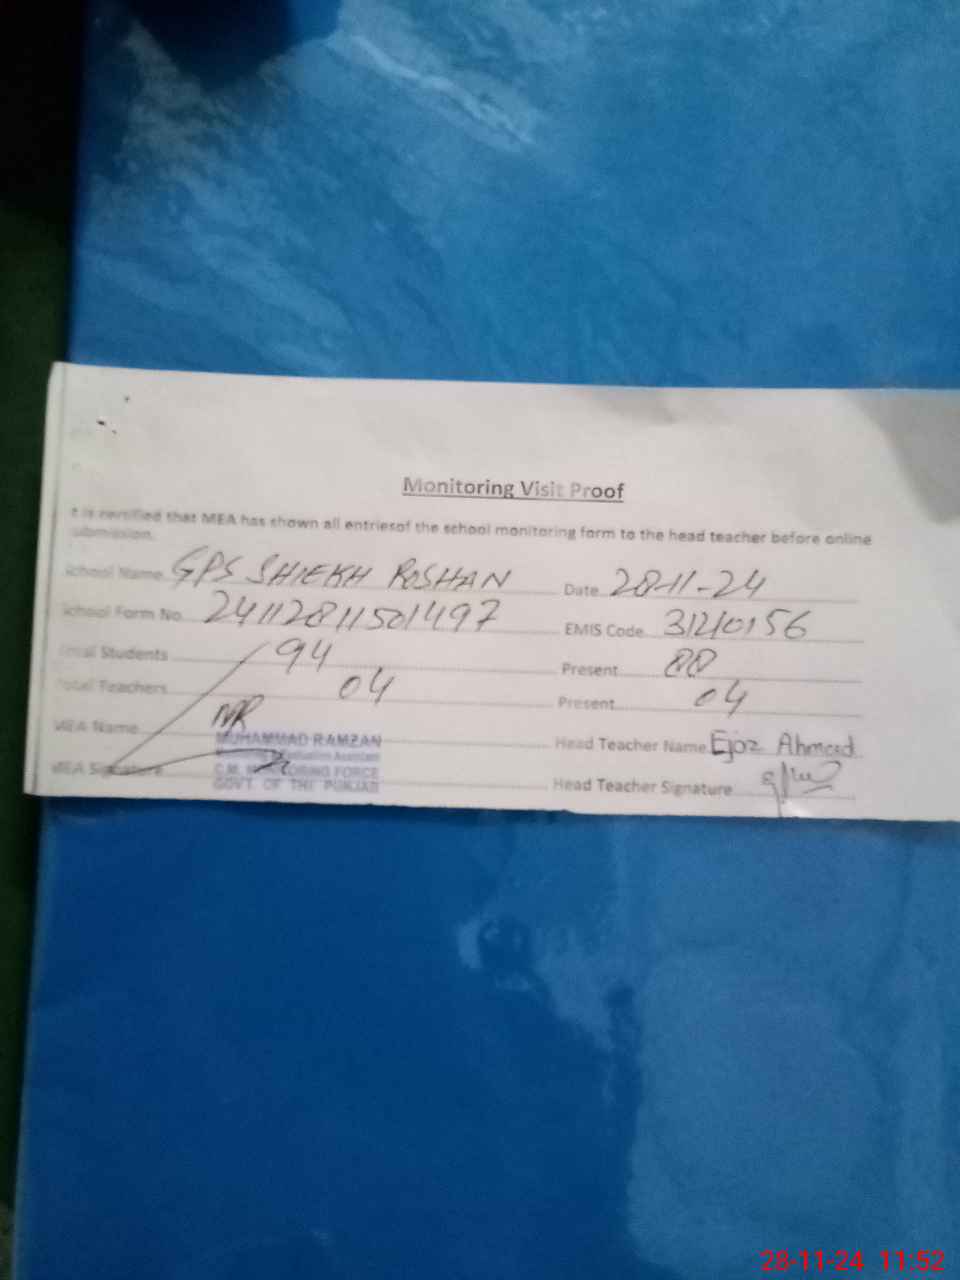 Monitoring Visit Proof
It is certified that MEA has shown all entriesof the school monitoring form to the head teacher before online
submission.
School Name GPS SHIEKH ROSHAN Date 28-11-24
School Form No. 24112811501497 EMIS Code 31210156
Total Students 94 Present 88
Total Teachers 04 Present 04
MEA Name MR Head Teacher Name Ejaz Ahmad
MUHAMMAD RAMZAN
Evaluation Assistant
MEA Signature C.M. MONITORING FORCE Head Teacher Signature
GOVT. OF THE PUNJAB
28-11-24 11:52